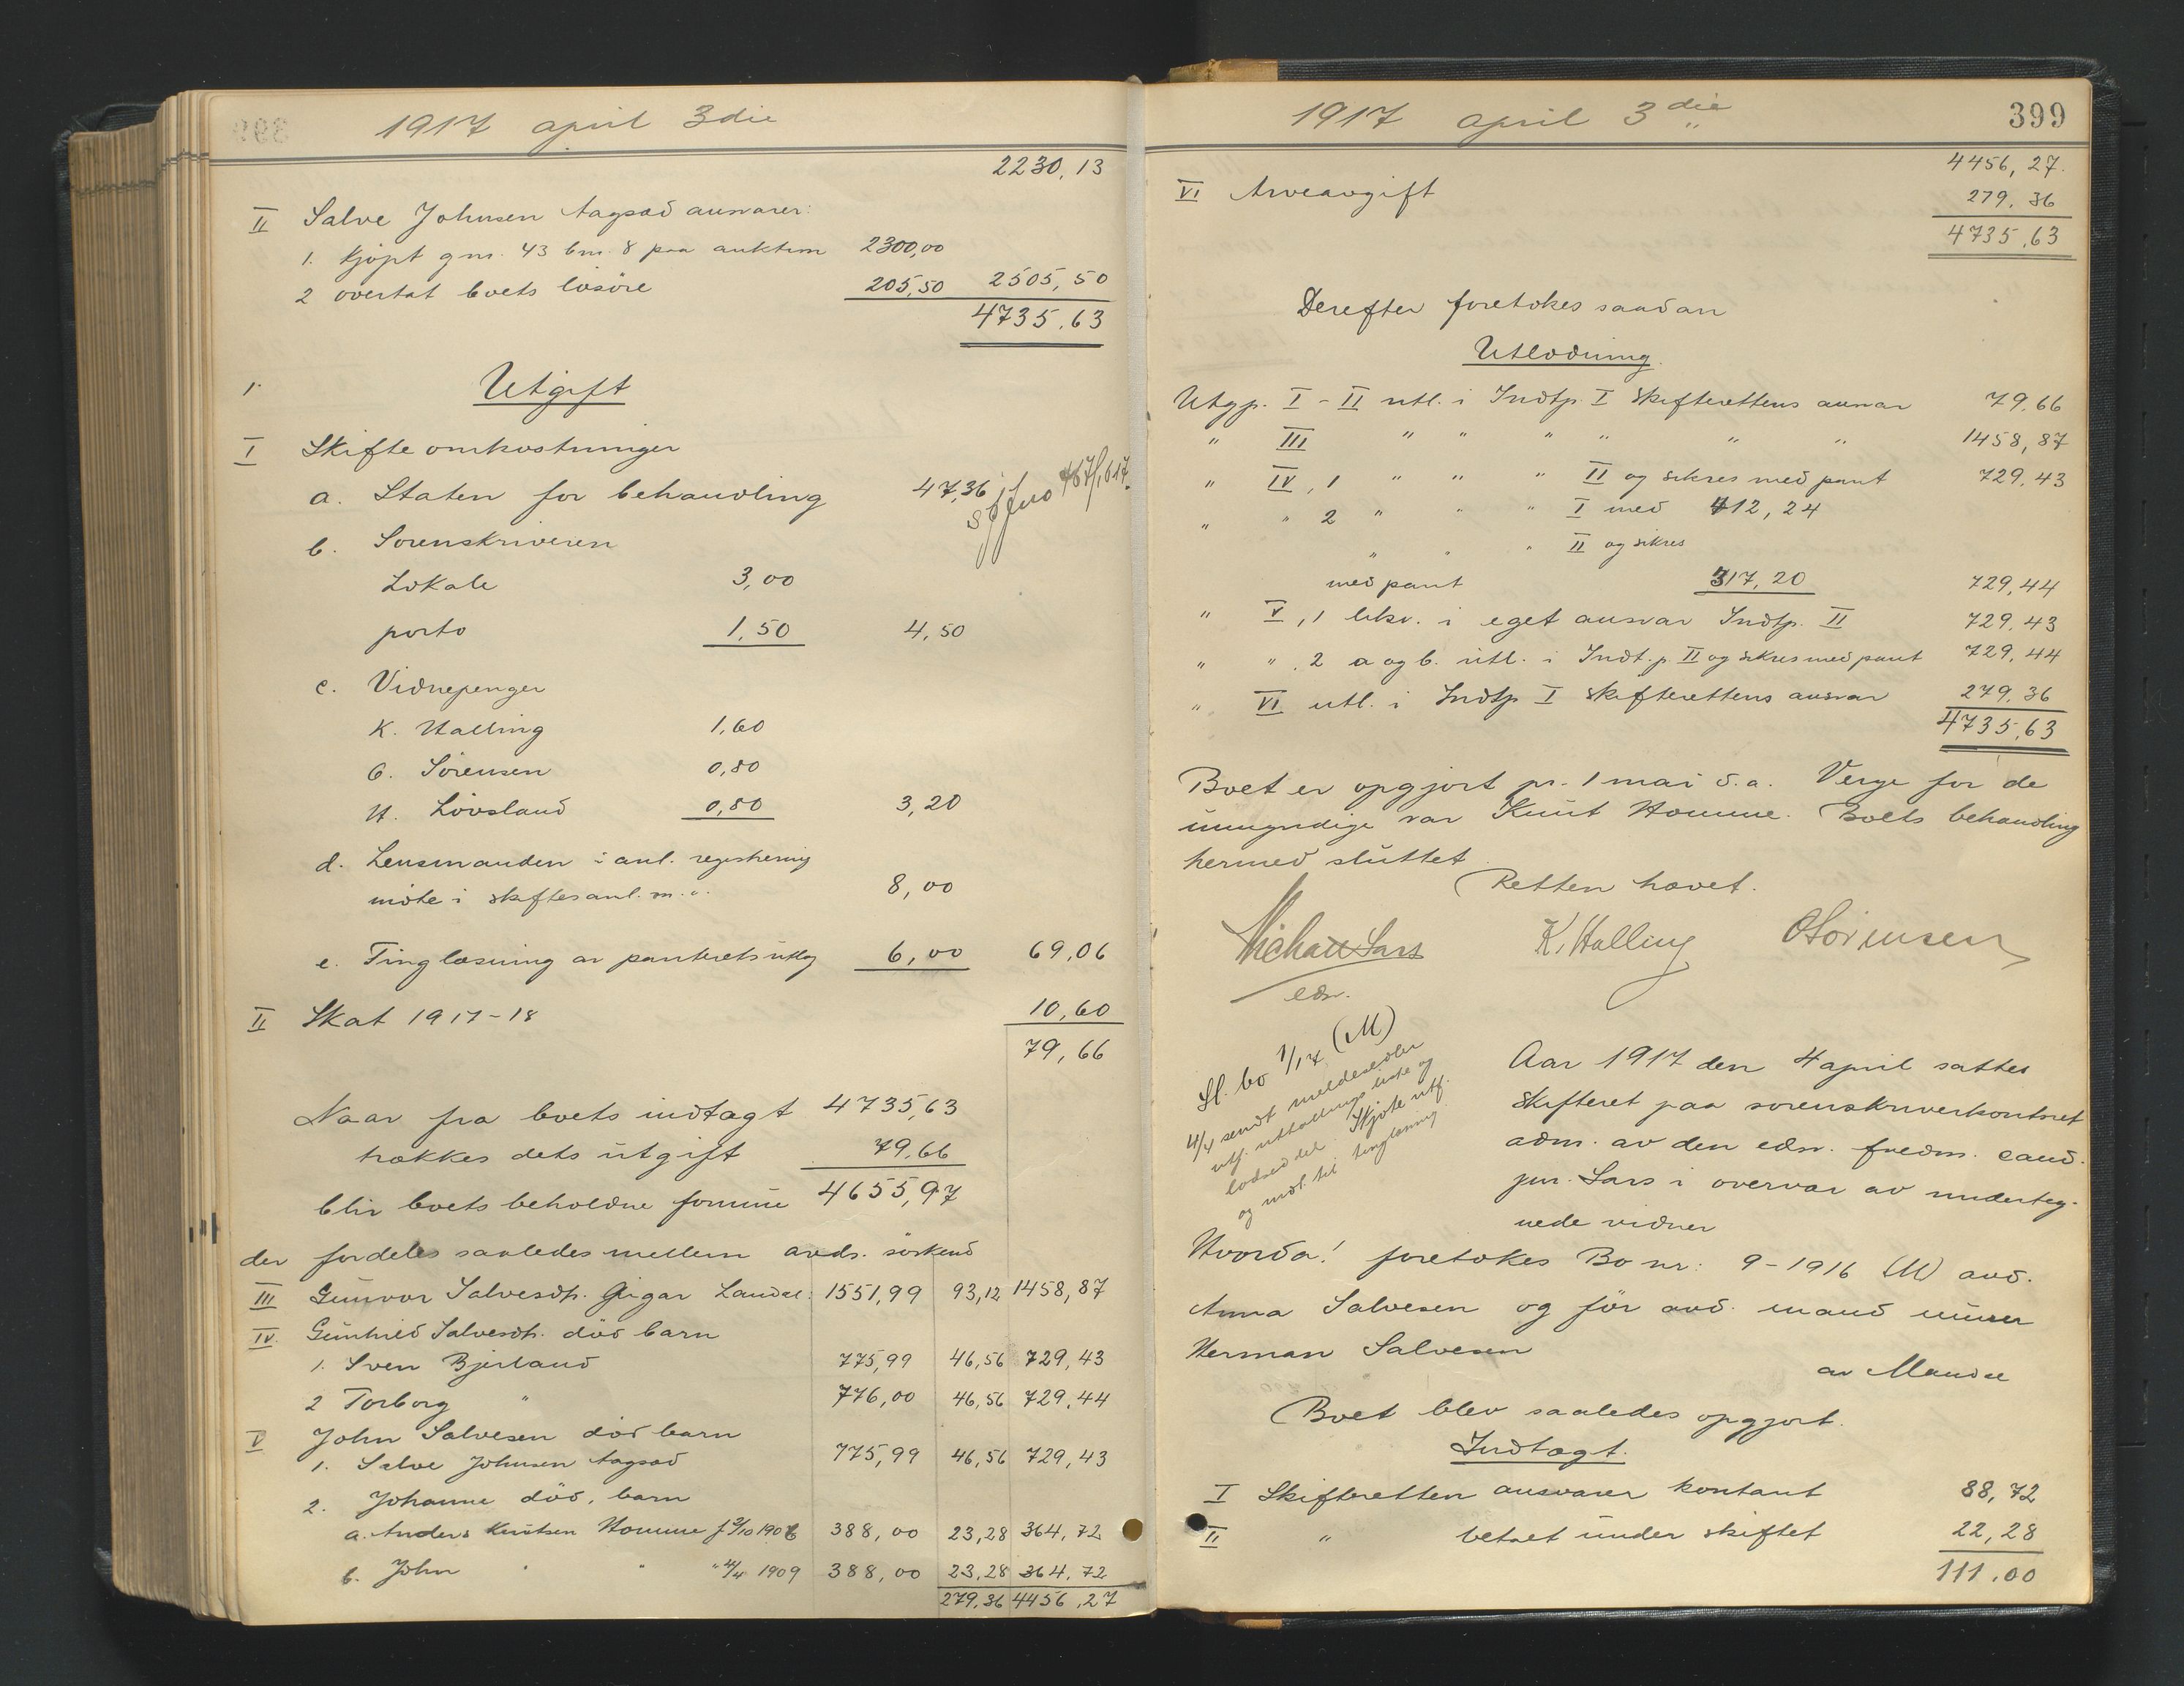 1917 april 3die
2230,13
II Salve Johnsen Aagsad ansvarer:
1. Kjøpt gnr. 43 bnr. 8 paa auktion 2300,00
2 overtat boets løsøre 205,50 2505,50
4735,63
1. Utgift
I Skifteomkostninger
a. Staten for behandling 47,36
b. Sorenskriveren
Lokale 3,00
porto 1,50 4,50
c. Vidnepenger
K. Halling 1,60
O. Sørensen 0,80
H. Lövsland 0,80 3,20
d. Lensmanden i anl. registrering
møte i skiftesaml. m.v. 8,00
e. Tinglæsning av panteretsutlæg 6,00 69,06
II Skat 1917-18 10,60
79,66
Naar fra boets indtægt 4735,63
trækkes dets utgift 79,66
blir boets beholdne formue 4655,97
der fordeles saaledes mellem avds. søskend
III Gunvor Salvesdtr. Landal: 1551,99 93,12 1458,87
IV. Gunhild Salvesdtr. død barn
1. Sven Bjerland 775,99 46,56 729,43
2 Torborg " 776,00 46,56 729,44
V John Salvesen død barn
1. Salve Johnsen Aagsad 775,99 46,56 729,43
2. Johanne död, barn
a. Anders Knutsen Homme f 2/10 1906 388,00 23,28 364,72
b. John " " " 4/4 1909 388,00 23,28 364,72
279,36 4456,27
1917 april 3die
399
4456,27.
VI Arveavgift 279,36
4735,63
Derefter foretokes saadan
Utlodning.
Utgp. I - II utl. i Indtp. I Skifterettens ansvar 79,66
" III " " " " " " 1458,87
" IV, 1 " " " II og sikres med pant 729,43
" " 2 " " " I med 412,24
" " " II og sikres
med pant 317,20 729,44
" V, 1 likv. i eget ansvar Indtp. II 729,43
" ". 2 a og b. utl. i Indt.p. II og sikres med pant 729,44
" VI utl. i Indtp I skifterettens ansvar 279,36
4735,63
Boet er opgjort pr. 1 mai d.a. Verge for de
umyndige var Knut Homme. Boets behandling
hermed sluttet.
Retten hævet.
Michael Lars K. Halling O Sörensen
edsv.
Sl. bo 1/17 (M)
4/4 sendt meldesedler
utf. uttællings liste og
lodseddel. Skjøte utf.
og indl. til tinglæsning
Aar 1917 den 4 april sattes
Skifteret paa sorenskriverkontoret
adm. av den edsv. fuldm. cand.
jur. Lars i overvær av underteg-
nede vidner
Hvorda! foretokes Bo nr: 9-1916 (M) avd.
Anna Salvesen og før avd. mand
Herman Salvesen
av Mandal
Boet blev saaledes opgjort.
Indtægt.
I Skifteretten ansvarer kontant 88,72
II " betalt under skiftet 22,28
111,00